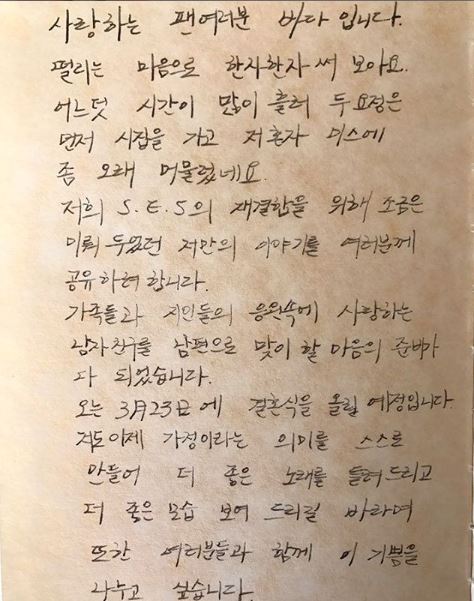 사랑하는 팬여러분 바다입니다.
떨리는 마음으로 한자한자 써 보아요.
어느덧 시간이 많이 흘러 두요정은
먼저 시집을 가고 저혼자 미스에
좀 오래 머물렀네요.
저희 S.E.S의 재결합을 위해 조금은
미뤄 두었던 저만의 이야기를 여러분께
공유하려 합니다.
가족들과 지인들의 응원속에 사랑하는
남자친구를 남편으로 맞이 할 마음의 준비가
다 되었습니다.
오는 3月23日에 결혼식을 올릴 예정입니다.
저도이제 가정이라는 의미를 스스로
만들어 더 좋은 노래를 들려드리고
더 좋은 모습 보여 드리길 바라며
또한 여러분들과 함께 이 기쁨을
나누고 싶습니다.